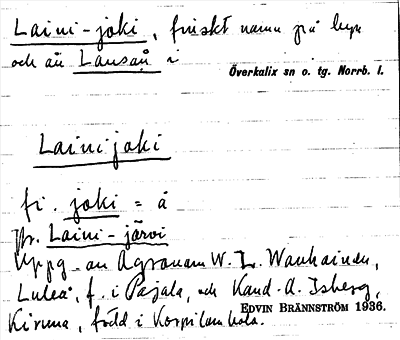 Laini-joki, finskt namn på byn
och ån Lansån i
Överkalix sn o. tg. Norrb. l.
Laini joki
fi. joki = å
jfr. Laini-järvi
Uppg. av Agronom W. L. Wanhainen,
Luleå, f. i Pajala, och Kand. A. Isberg,
Kiruna, född i Korpilombolo.
EDVIN BRÄNNSTRÖM 1936.